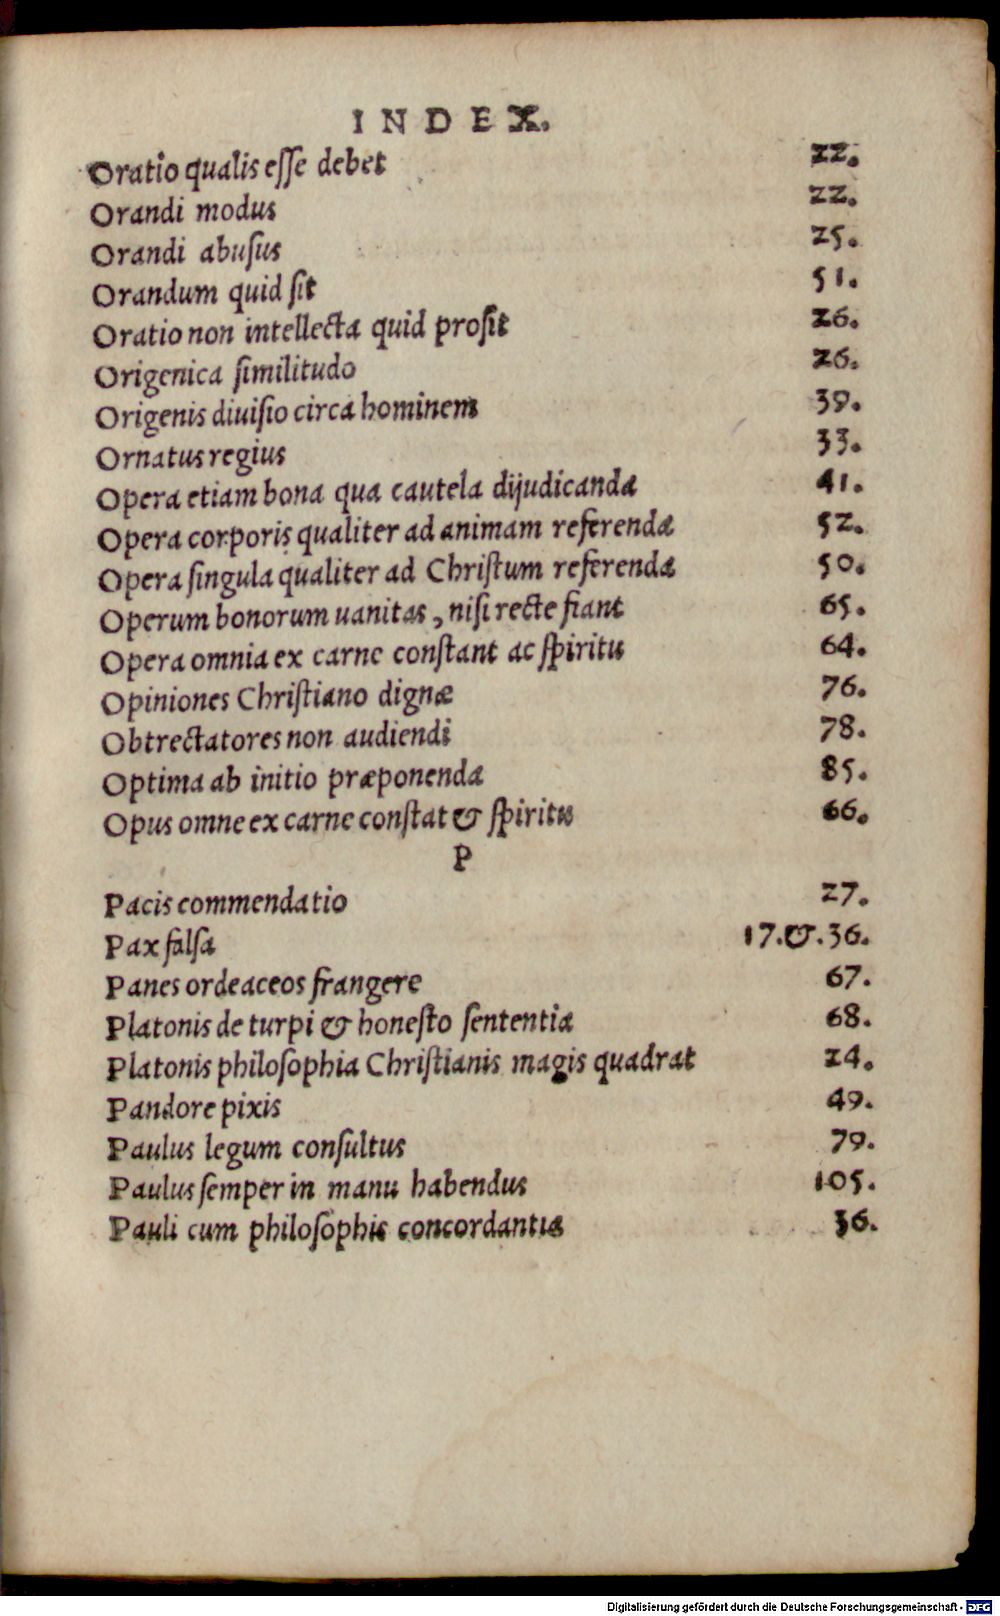 INDEX.
Oratio qualis esse debet 22.
Orandi modus 22.
Orandi abusus 25.
Orandum quid sit 51.
Oratio non intellecta quid prosit 26.
Origenica similitudo 26.
Origenis diuisio circa hominem 39.
Ornatus regius 33.
Opera etiam bona qua cautela dijudicanda 41.
Opera corporis qualiter ad animam referenda 52.
Opera singula qualiter ad Christum referenda 50.
Operum bonorum uanitas, nisi recte fiant 65.
Opera omnia ex carne constant ac spiritu 64.
Opiniones Christiano dignæ 76.
Obtrectatores non audiendi 78.
Optima ab initio præponenda 85.
Opus omne ex carne constat & spiritu 66.
P
Pacis commendatio 27.
Pax falsa 17.&.36.
Panes ordeaceos frangere 67.
Platonis de turpi & honesto sententia 68.
Platonis philosophia Christianis magis quadrat 24.
Pandore pixis 49.
Paulus legum consultus 79.
Paulus semper in manu habendus 105.
Pauli cum philosophis concordantia 36.
Digitalisierung gefördert durch die Deutsche Forschungsgemeinschaft - DFG